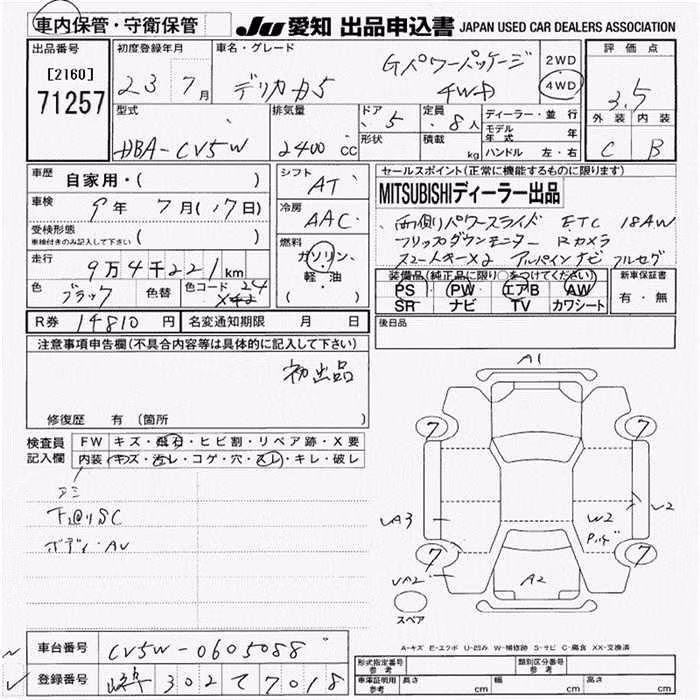 車内保管・守衛保管
JU 愛知 出品申込書 JAPAN USED CAR DEALERS ASSOCIATION
出品番号
[2160]
71257
初度登録年月
23 7月
車名・グレード
デリカD5
Gパワーパッケージ
4WD
2WD
4WD
評価点
3.5
外装 内装
C B
型式
DBA-CV5W
排気量
2400 CC
ドア 5
形状
定員 8人
積載 kg
ディーラー・並行
モデル年式 年
ハンドル 左・右
車歴 自家用・( )
車検 9年 7月(17日)
受検形態
車検付きのみ記入して下さい ( )
走行 9万4千221km
色 ブラック
色替
色コード 24
X42
シフト AT
冷房 AAC
燃料
ガソリン
軽・油
( )
セールスポイント(正常に機能するものに限ります)
MITSUBISHIディーラー出品
両側パワースライド ETC 18AW
フリップダウンモニター Rカメラ
スマートキーX2 アルパインナビ フルセグ
装備品(純正品に限り○をつけてください)
PS PW エアB AW
SR ナビ TV カワシート
新車保証書
有・無
R券 14810円
名変通知期限 月 日
後日品
注意事項申告欄(不具合内容等は具体的に記入して下さい)
初出品
修復歴 有 (箇所 )
検査員記入欄
FW キズ・飛石・ヒビ割・リペア跡・X要
内装 キズ・汚レ・コゲ・穴・スレ・キレ・破レ
下回りSC
ボディ・AU
A1
7
7
A3
W2
2
7
7
A2
A2
スペア
A-キズ E-エクボ U-凹み W-補修跡 S-サビ C-腐食 XX-交換済
車台番号 CV5W-0605088
登録番号 302 て 7018
形式指定番号 参考
類別区分番号 参考
車庫証明用 参考
長さ cm
幅 cm
高さ cm